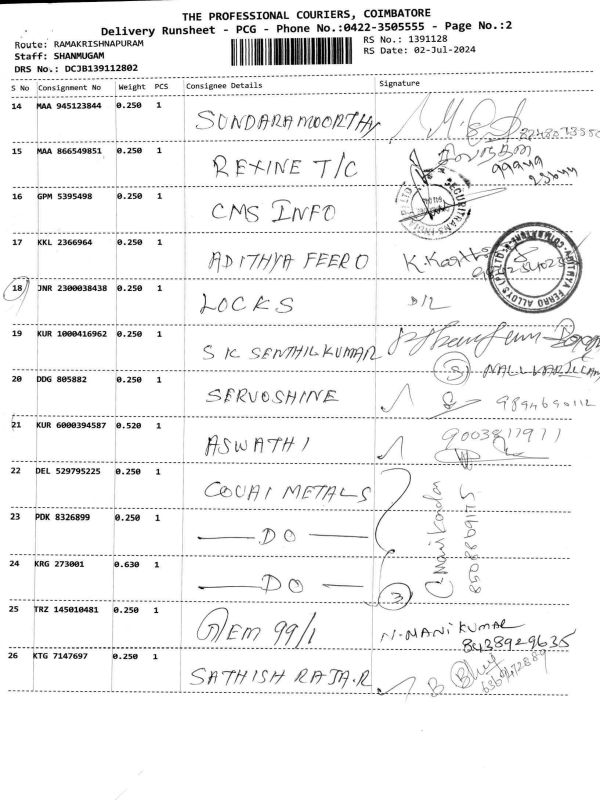 THE PROFESSIONAL COURIERS, COIMBATORE
Delivery Runsheet - PCG - Phone No.:0422-3505555 - Page No.:2
Route: RAMAKRISHNAPURAM
RS No.: 1391128
Staff: SHANMUGAM
RS Date: 02-Jul-2024
DRS No.: DCJB139112802
S No Consignment No Weight PCS Consignee Details Signature
14 MAA 945123844 0.250 1 SUNDARAMOORTHY
15 MAA 866549851 0.250 1 REXINE T/C
16 GPM 5395498 0.250 1 CMS INFO
17 KKL 2366964 0.250 1 ADITHYA FEERO K.
ADITHYA FERRO ALLOYS (P) LTD COIMBATORE
18 JNR 2300038438 0.250 1 LOCKS D/L
19 KUR 1000416962 0.250 1 S K SENTHILKUMAR
20 DDG 805882 0.250 1 SERVOSHINE 9894690112
21 KUR 6000394587 0.520 1 ASWATHI 9003817911
22 DEL 529795225 0.250 1 COVAI METALS
23 PDK 8326899 0.250 1 — DO —
24 KRG 273001 0.630 1 — DO — 3
C. Manikandan
8508869175
25 TRZ 145010481 0.250 1 GEM 99/1 N-MANI KUMAR
8438929635
26 KTG 7147697 0.250 1 SATHISH RAJA.R